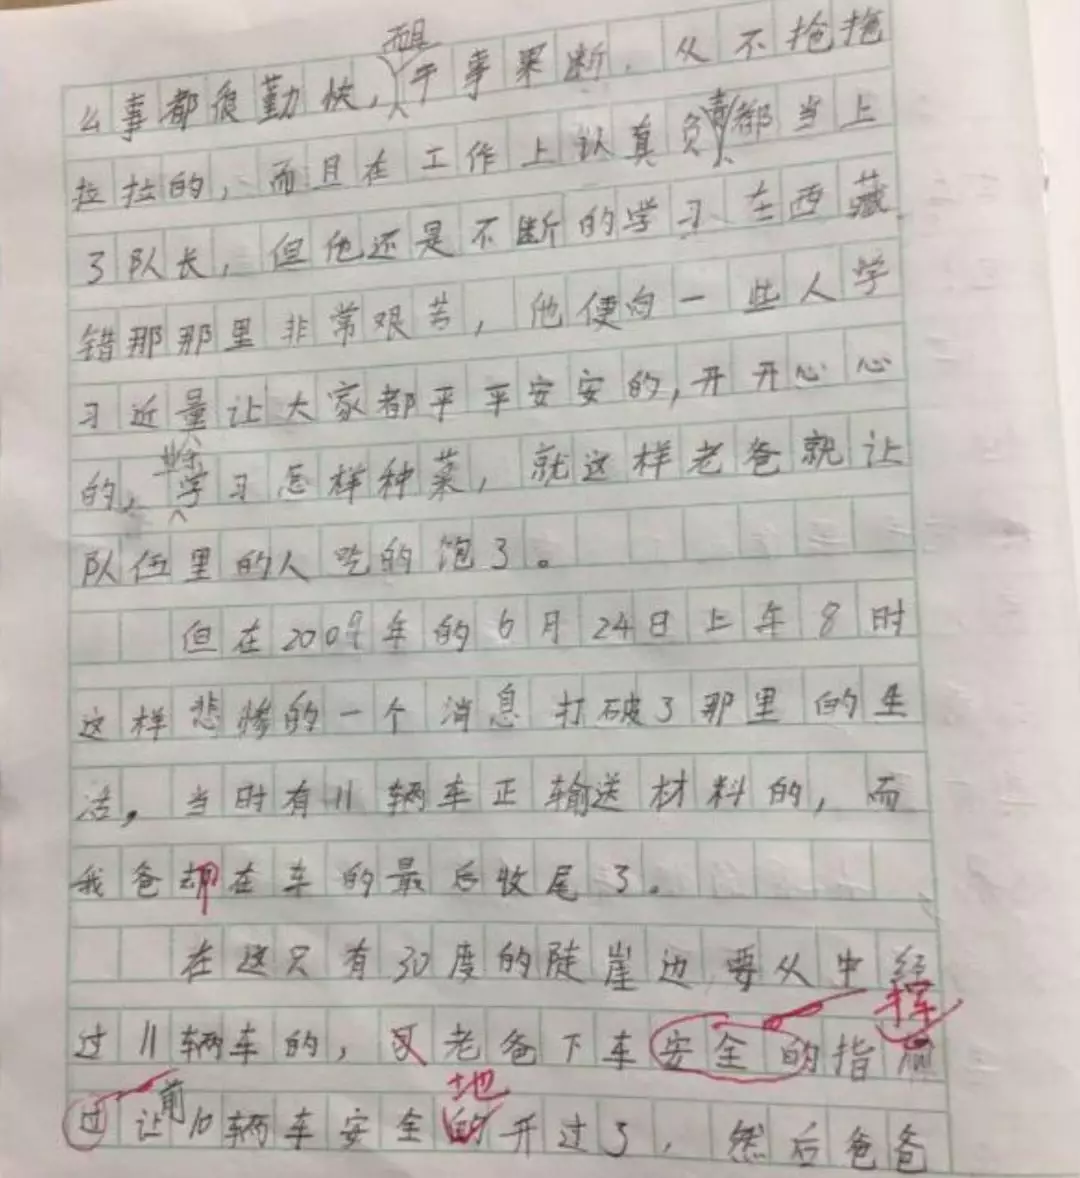 么事都很勤快，而且干事果断，从不拖拖
拉拉的，而且在工作上认真负责，都当上
了队长，但他还是不断的学习，在西藏
错那那里非常艰苦，他便向一些人学
习近量让大家都平平安安的，开开心心
的，学习怎样种菜，就这样老爸就让
队伍里的人吃的饱了。
但在2009年的6月24日上午8时
这样悲惨的一个消息打破了那里的生
活，当时有11辆车正输送材料的，而
我爸却在车的最后收尾了。
在这只有30度的陡崖边要从中经
过11辆车的，老爸下车安全的指挥
过让前10辆车安全地的开过了，然后爸爸